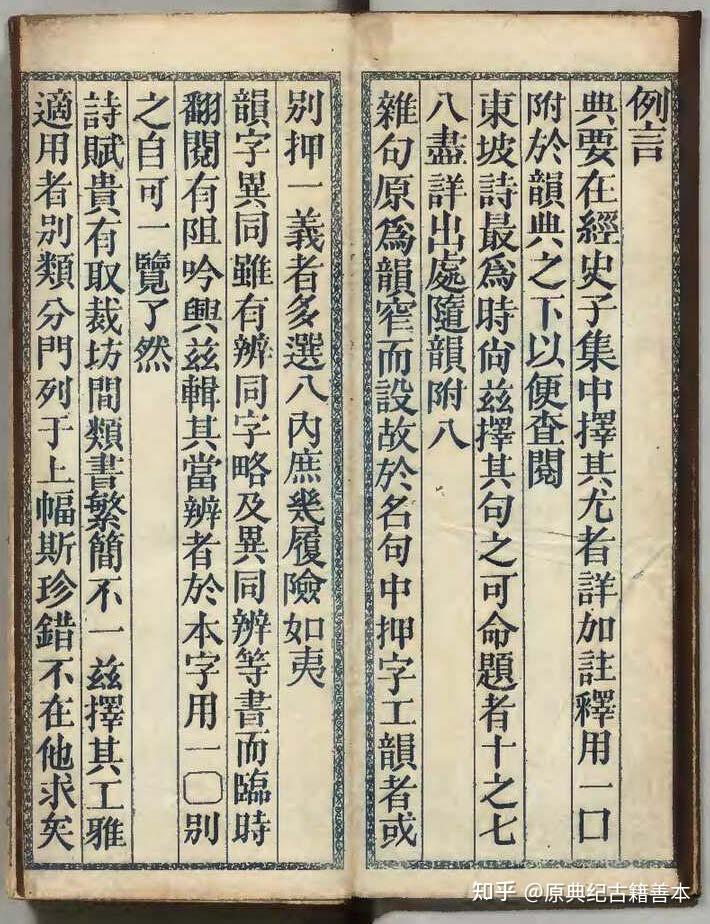 例言
典要在經史子集中擇其尤者詳加註釋用一口
附於韻典之下以便查閱
東坡詩最爲時尙兹擇其句之可命題者十之七
八盡詳出處隨韻附入
雜句原爲韻窄而設故於名句中押字工韻者或
別押一義者多選入內庶幾履險如夷
韻字異同雖有辨同字略及異同辨等書而臨時
翻閱有阻吟興兹輯其當辨者於本字用一〇別
之自可一覽了然
詩賦貴有取裁坊間類書繁簡不一兹擇其工雅
適用者別類分門列于上幅斯珍錯不在他求矣
知乎 @原典纪古籍善本